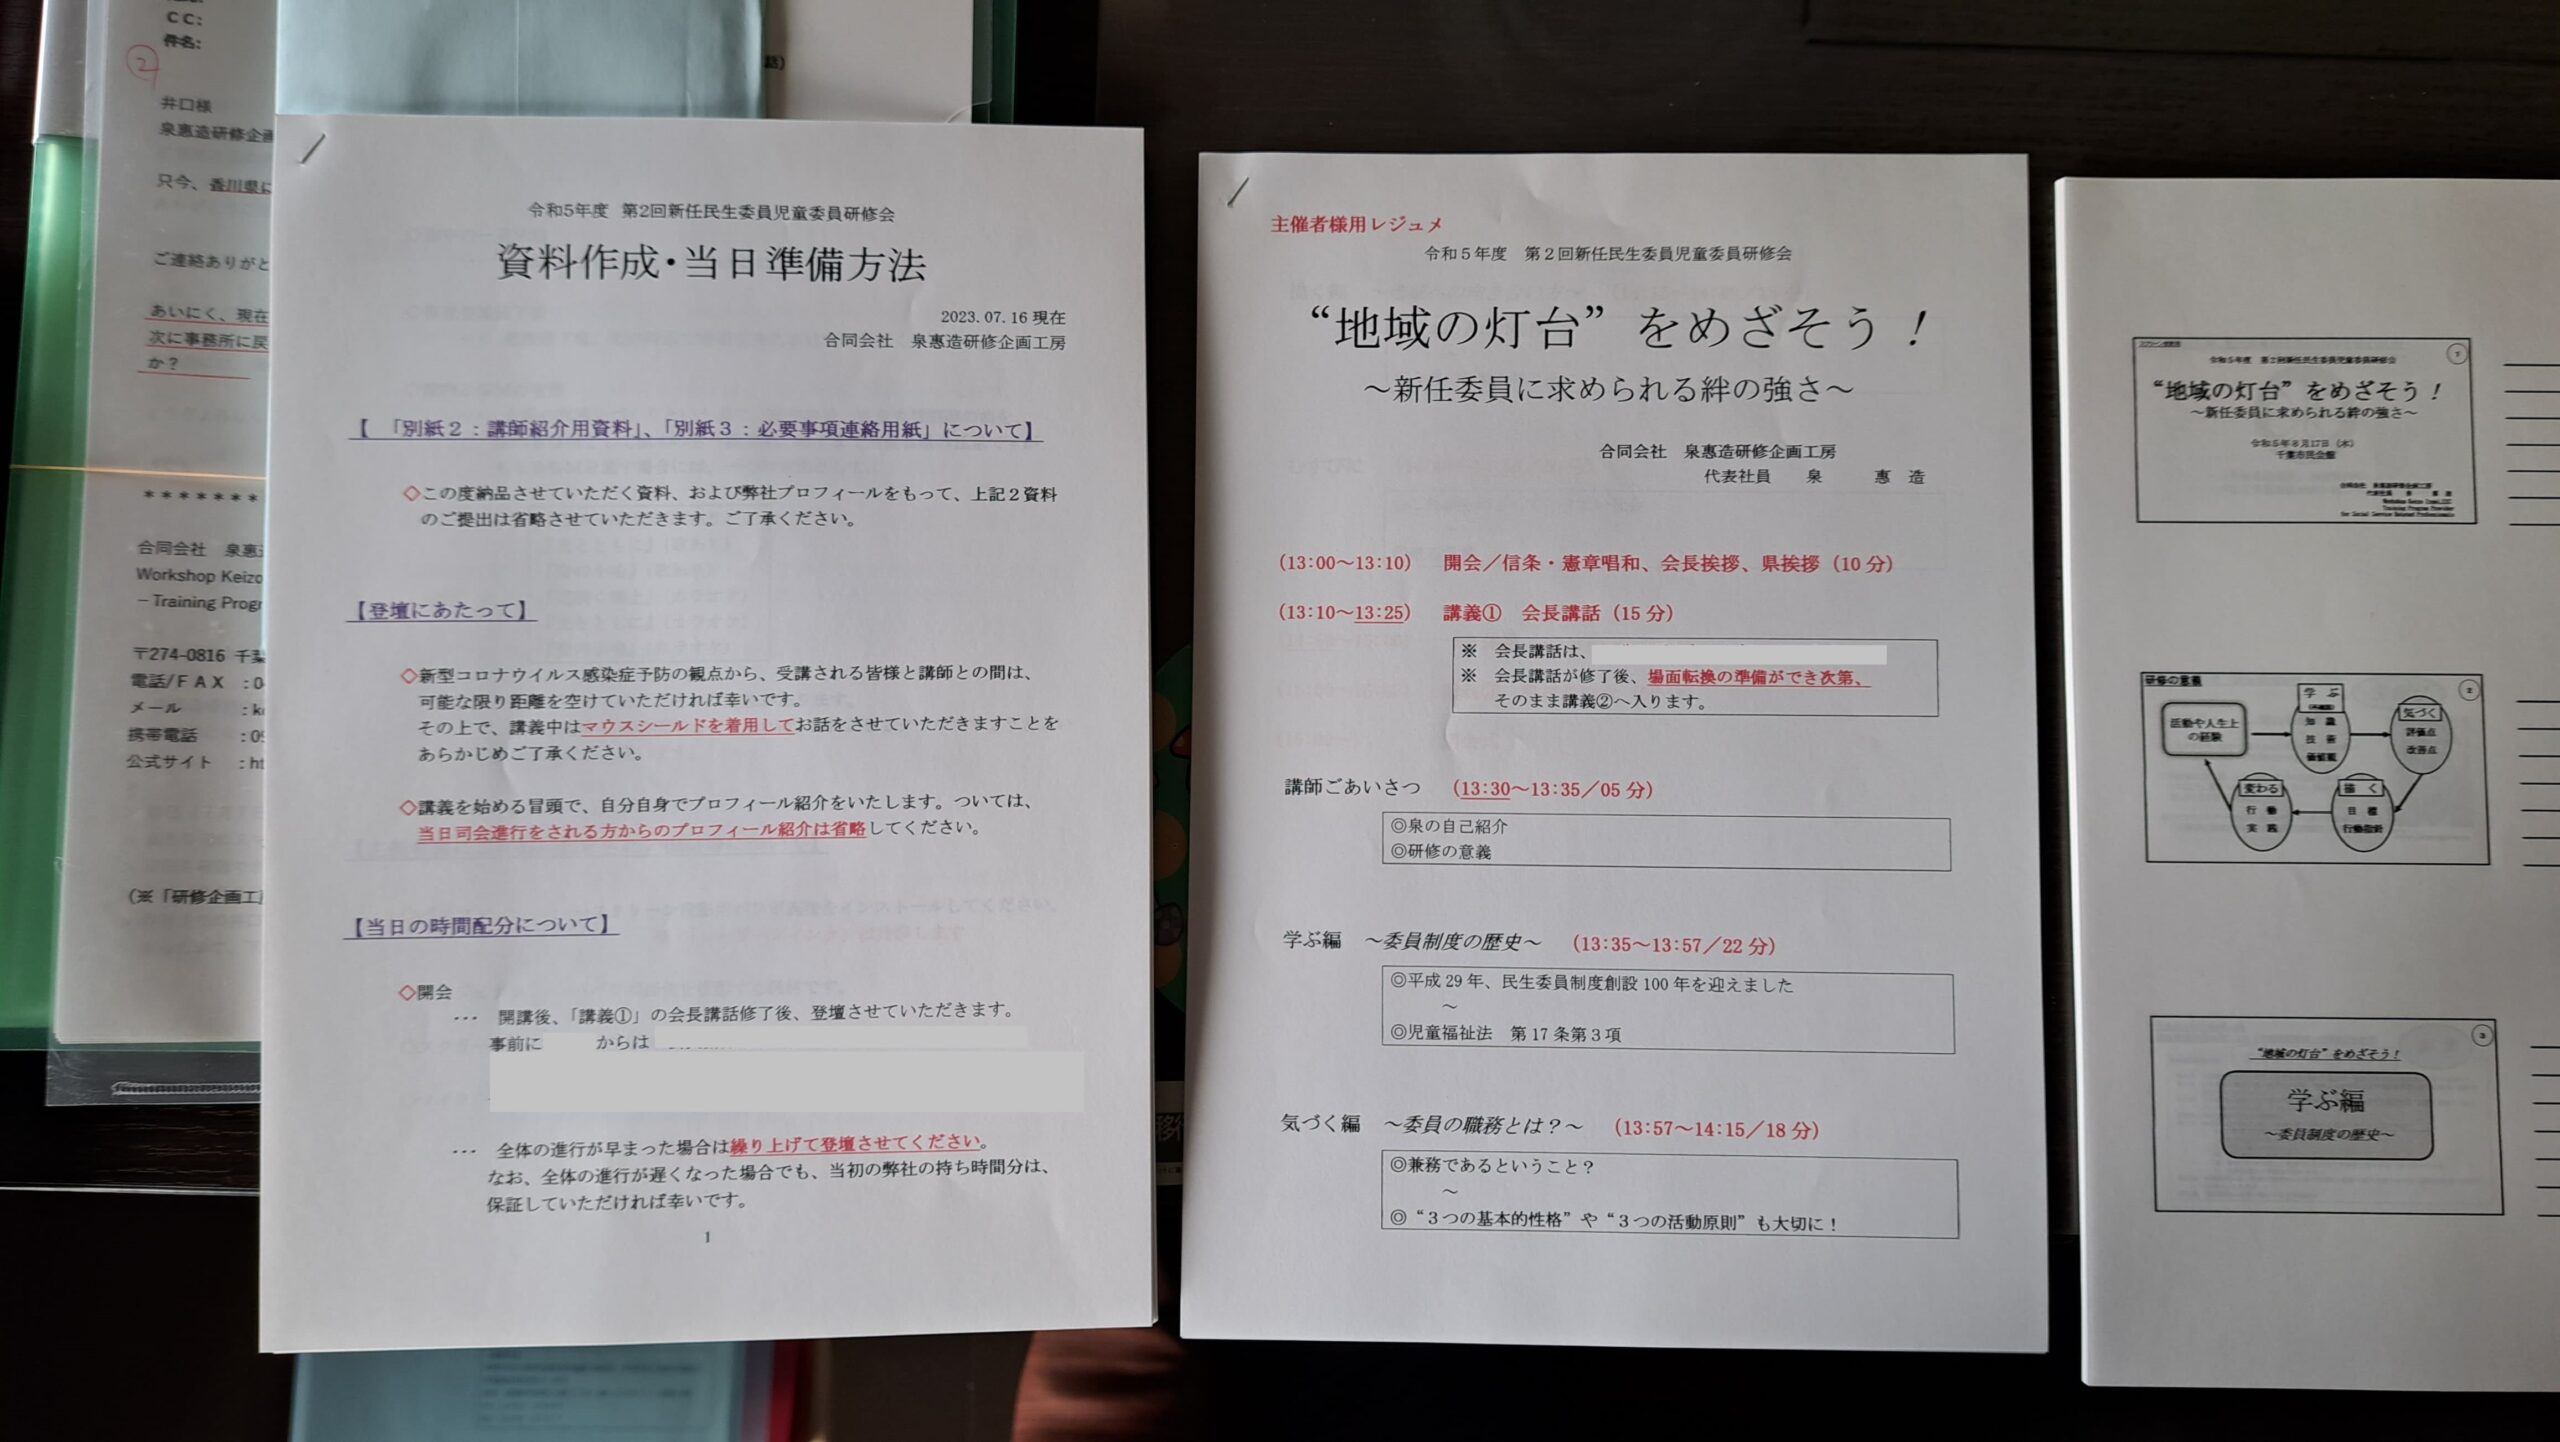 CC:
件名:
②
井口様
泉惠造研修企画
只今、香川県に
ご連絡ありがと
あいにく、現在
次に事務所に戻
か？
*******
合同会社　泉惠造
Workshop Keizo
－Training Progr
〒274-0816 千葉
電話/ＦＡＸ　:0
メール　:k
携帯電話　:09
公式サイト　:ht
(※「研修企画工房
話）
令和5年度　第2回新任民生委員児童委員研修会
資料作成・当日準備方法
2023.07.16 現在
合同会社　泉惠造研修企画工房
【　「別紙２：講師紹介用資料」、「別紙３：必要事項連絡用紙」について】
◇この度納品させていただく資料、および弊社プロフィールをもって、上記２資料
のご提出は省略させていただきます。ご了承ください。
【登壇にあたって】
◇新型コロナウイルス感染症予防の観点から、受講される皆様と講師との間は、
可能な限り距離を空けていただければ幸いです。
その上で、講義中はマウスシールドを着用してお話をさせていただきますことを
あらかじめご了承ください。
◇講義を始める冒頭で、自分自身でプロフィール紹介をいたします。ついては、
当日司会進行をされる方からのプロフィール紹介は省略してください。
【当日の時間配分について】
◇開会
… 開講後、「講義①」の会長講話修了後、登壇させていただきます。
事前に　　からは
… 全体の進行が早まった場合は繰り上げて登壇させてください。
なお、全体の進行が遅くなった場合でも、当初の弊社の持ち時間分は、
保証していただければ幸いです。
1
主催者様用レジュメ
令和５年度　第２回新任民生委員児童委員研修会
“地域の灯台”をめざそう！
～新任委員に求められる絆の強さ～
合同会社　泉惠造研修企画工房
代表社員　泉　惠造
（13:00～13:10）　開会／信条・憲章唱和、会長挨拶、県挨拶（10分）
（13:10～13:25）　講義①　会長講話（15分）
※　会長講話は、
※　会長講話が修了後、場面転換の準備ができ次第、
そのまま講義②へ入ります。
講師ごあいさつ　（13:30～13:35／05分）
◎泉の自己紹介
◎研修の意義
学ぶ編　～委員制度の歴史～　（13:35～13:57／22分）
◎平成29年、民生委員制度創設100年を迎えました
～
◎児童福祉法　第17条第３項
気づく編　～委員の職務とは？～　（13:57～14:15／18分）
◎兼務であるということ？
～
◎“３つの基本的性格”や“３つの活動原則”も大切に！
①
令和５年度　第２回新任民生委員児童委員研修会
“地域の灯台”をめざそう！
～新任委員に求められる絆の強さ～
令和５年８月17日（木）
千葉市民会館
合同会社　泉惠造研修企画工房
代表社員　泉　惠造
Workshop Keizo Izumi,LLC
Training Program Provider
for Social Service Related Professionals
研修の意義
②
活動や人生上
の経験
学ぶ
知識
技術
価値観
気づく
評価点
改善点
変わる
行動
実践
描く
目標
行動指針
③
“地域の灯台”をめざそう！
学ぶ編
～委員制度の歴史～